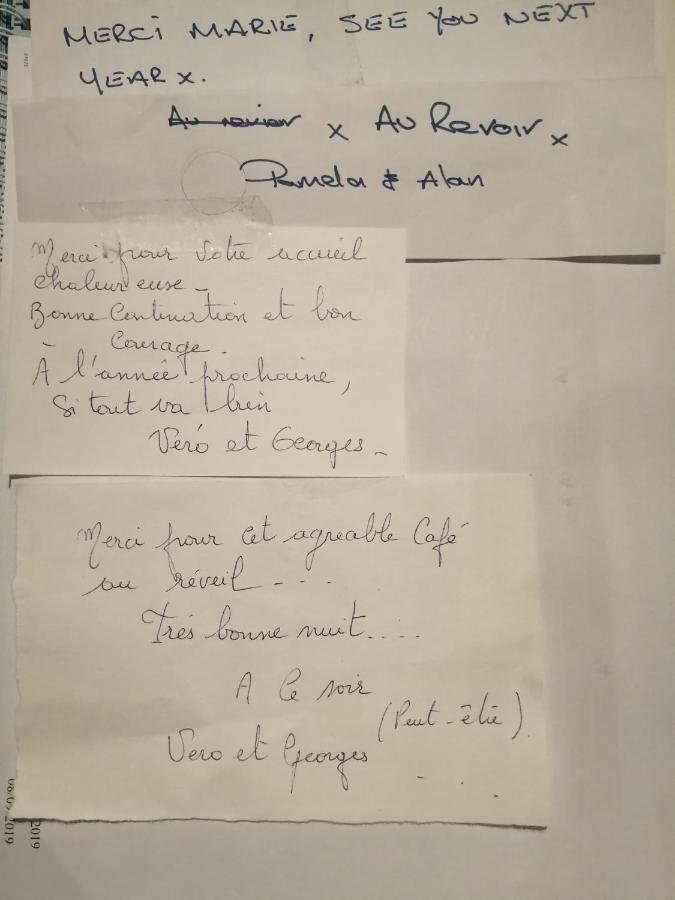 MERCI MARIE, SEE YOU NEXT
YEAR x.
Au revior x Au Revoir x
Pamela & Alan
Merci pour votre accueil
chaleureuse -
Bonne Continuation et bon
Courage.
A l'année prochaine,
Si tout va bien
Véro et Georges -
Merci pour cet agreable Café
au réveil - . . .
Très bonne nuit.....
A Ce soir
(Peut-être)
Vero et Georges
2019
2019